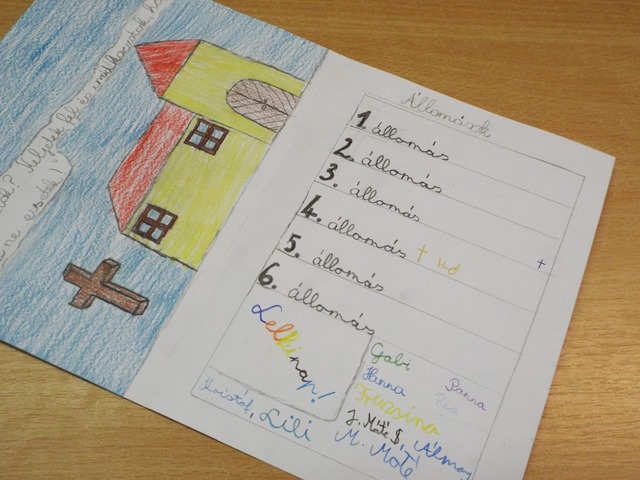 Keljetek fel és imádkozzatok
ne essetek
Állomások
1. állomás
2. állomás
3. állomás
4. állomás
5. állomás
6. állomás
Lelki nap!
Gabi
Hanna Panna
Fruzsina
J. Máté $, Álmos
Kristóf, Lili M. Máté